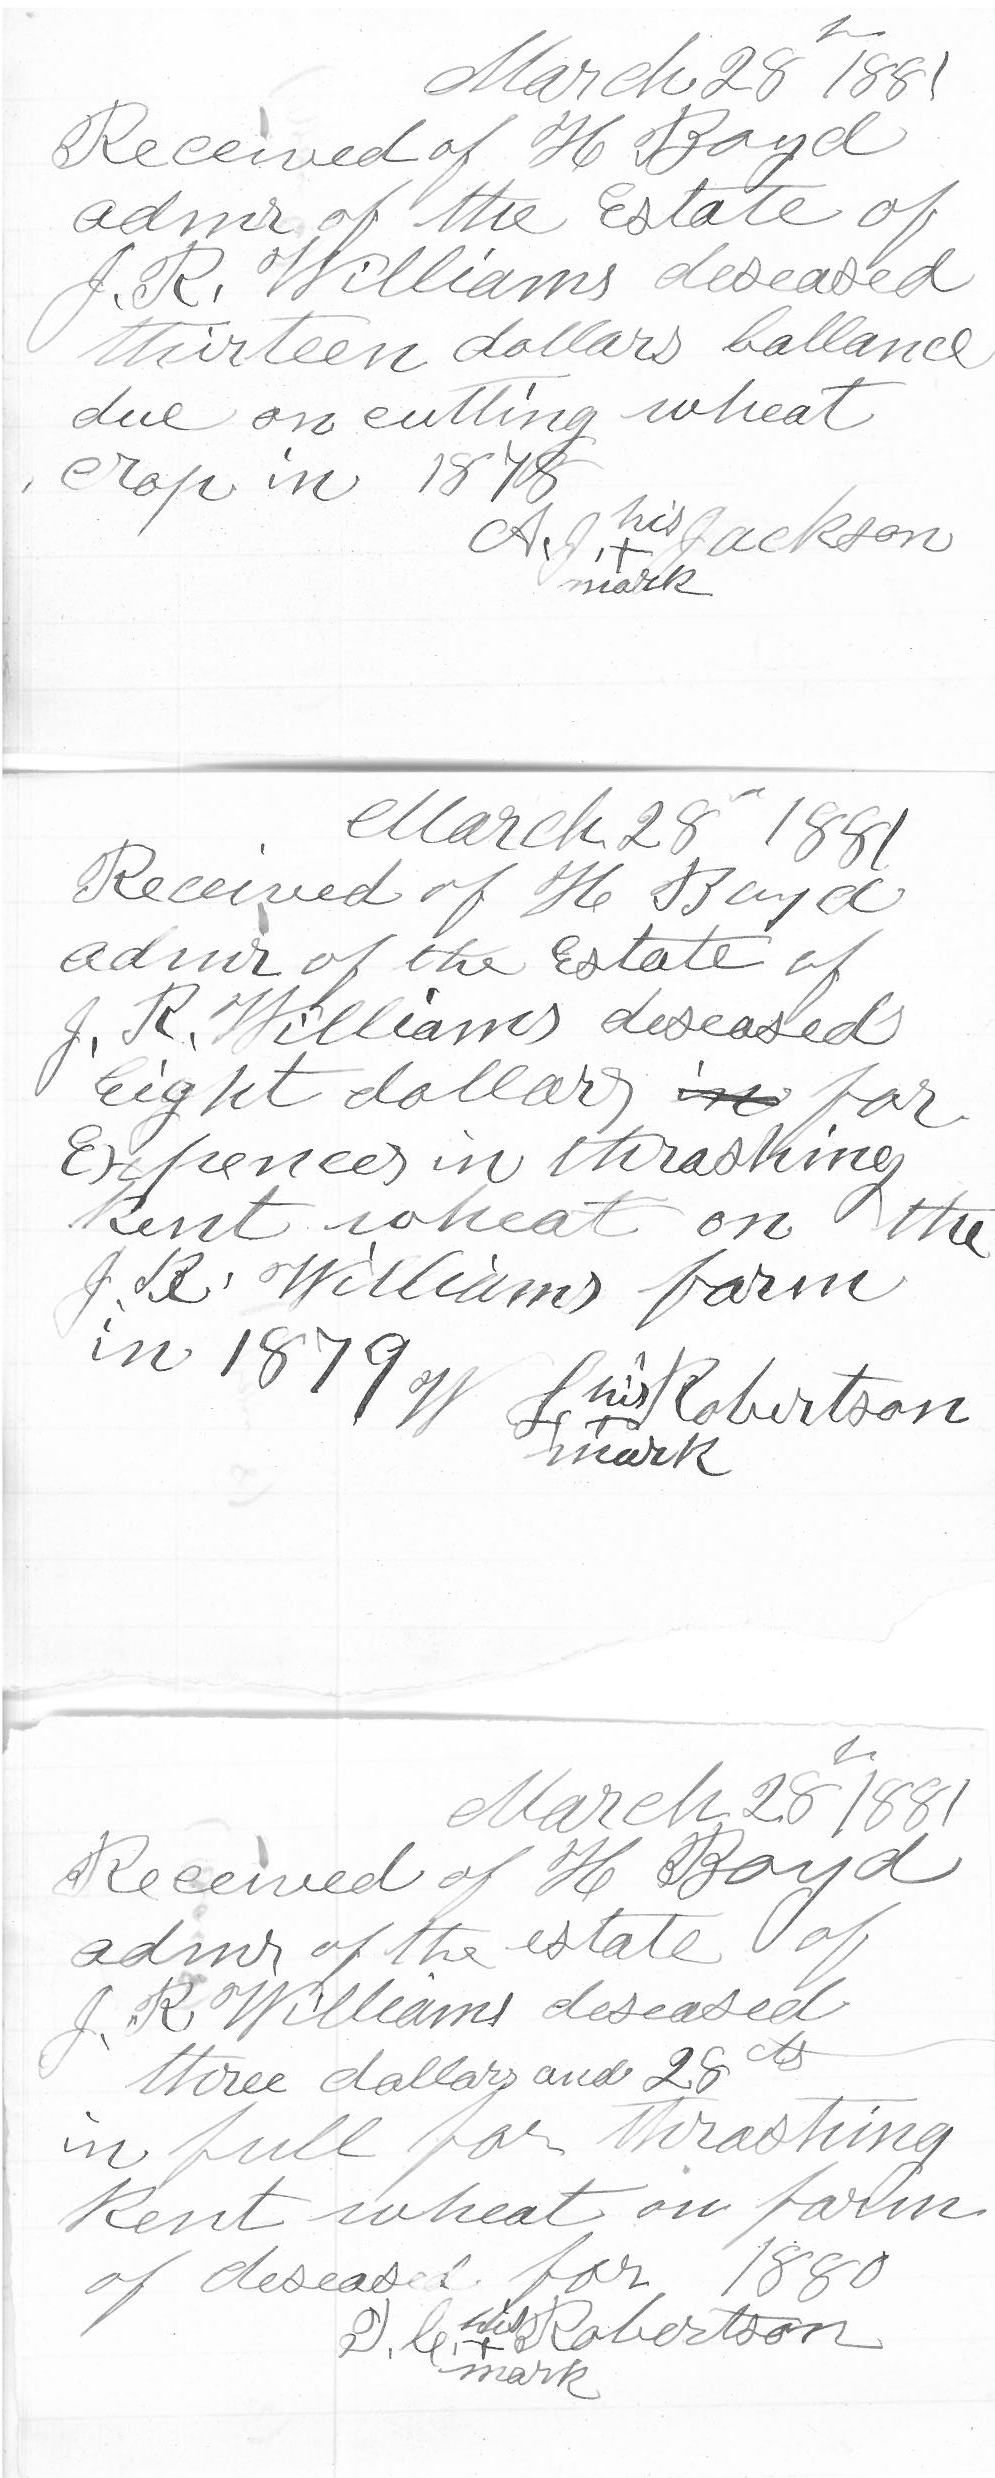 March 28th 1881
Received of H Boyd
admr of the Estate of
J. R. Williams deseased
thirteen dollars ballance
due on cutting wheat
crop in 1878
A. J. his + mark Jackson
March 28th 1881
Received of H Boyd
admr of the Estate of
J. R. Williams deseased
Eight dollars in for
Expences in thrashing
Rent wheat on the
J. R. Williams farm
in 1879
W L his + mark Robertson
March 28th 1881
Received of H Boyd
admr of the estate of
J. R Williams deseased
three dollars and 28 cts
in full for thrashing
Rent wheat on farm
of deseased for 1880
his + mark Robertson